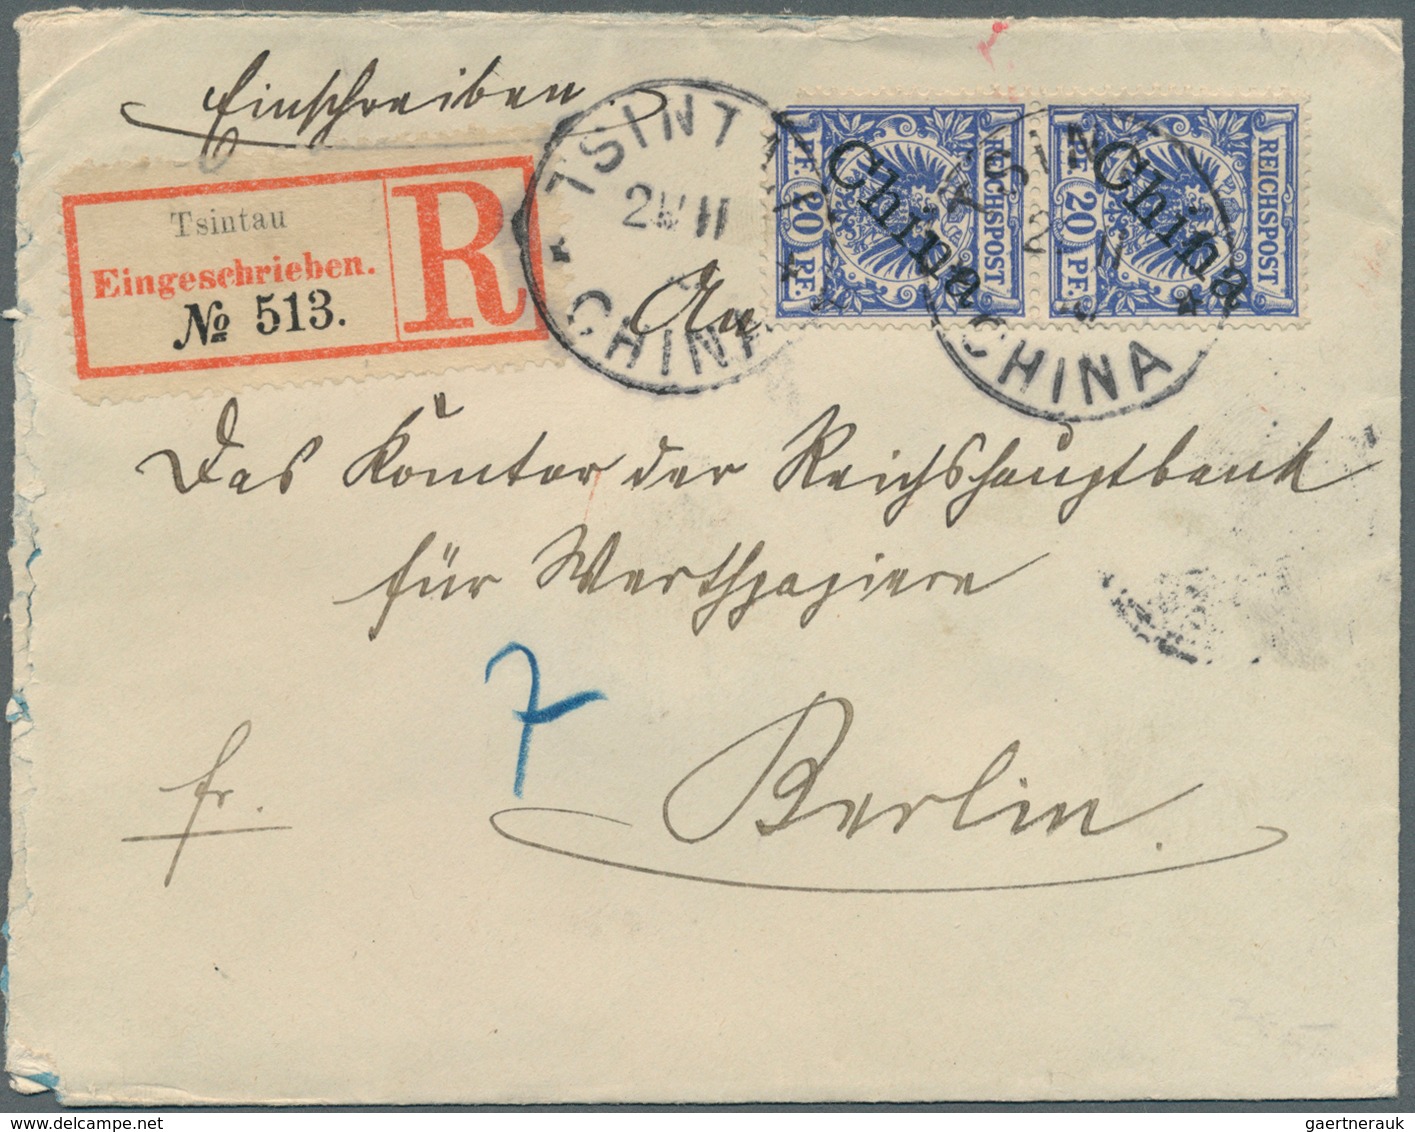 Einschreiben
Tsintau
Eingeschrieben.
№ 513.
R
TSINTAU
CHINA
REICHSPOST
20 PF. 20 PF.
China
REICHSPOST
20 PF. 20 PF.
China
CHINA
An
Das Komtor der Reichshauptbank
für Werthpapiere
7
fr.
Berlin.
gaertnerauk